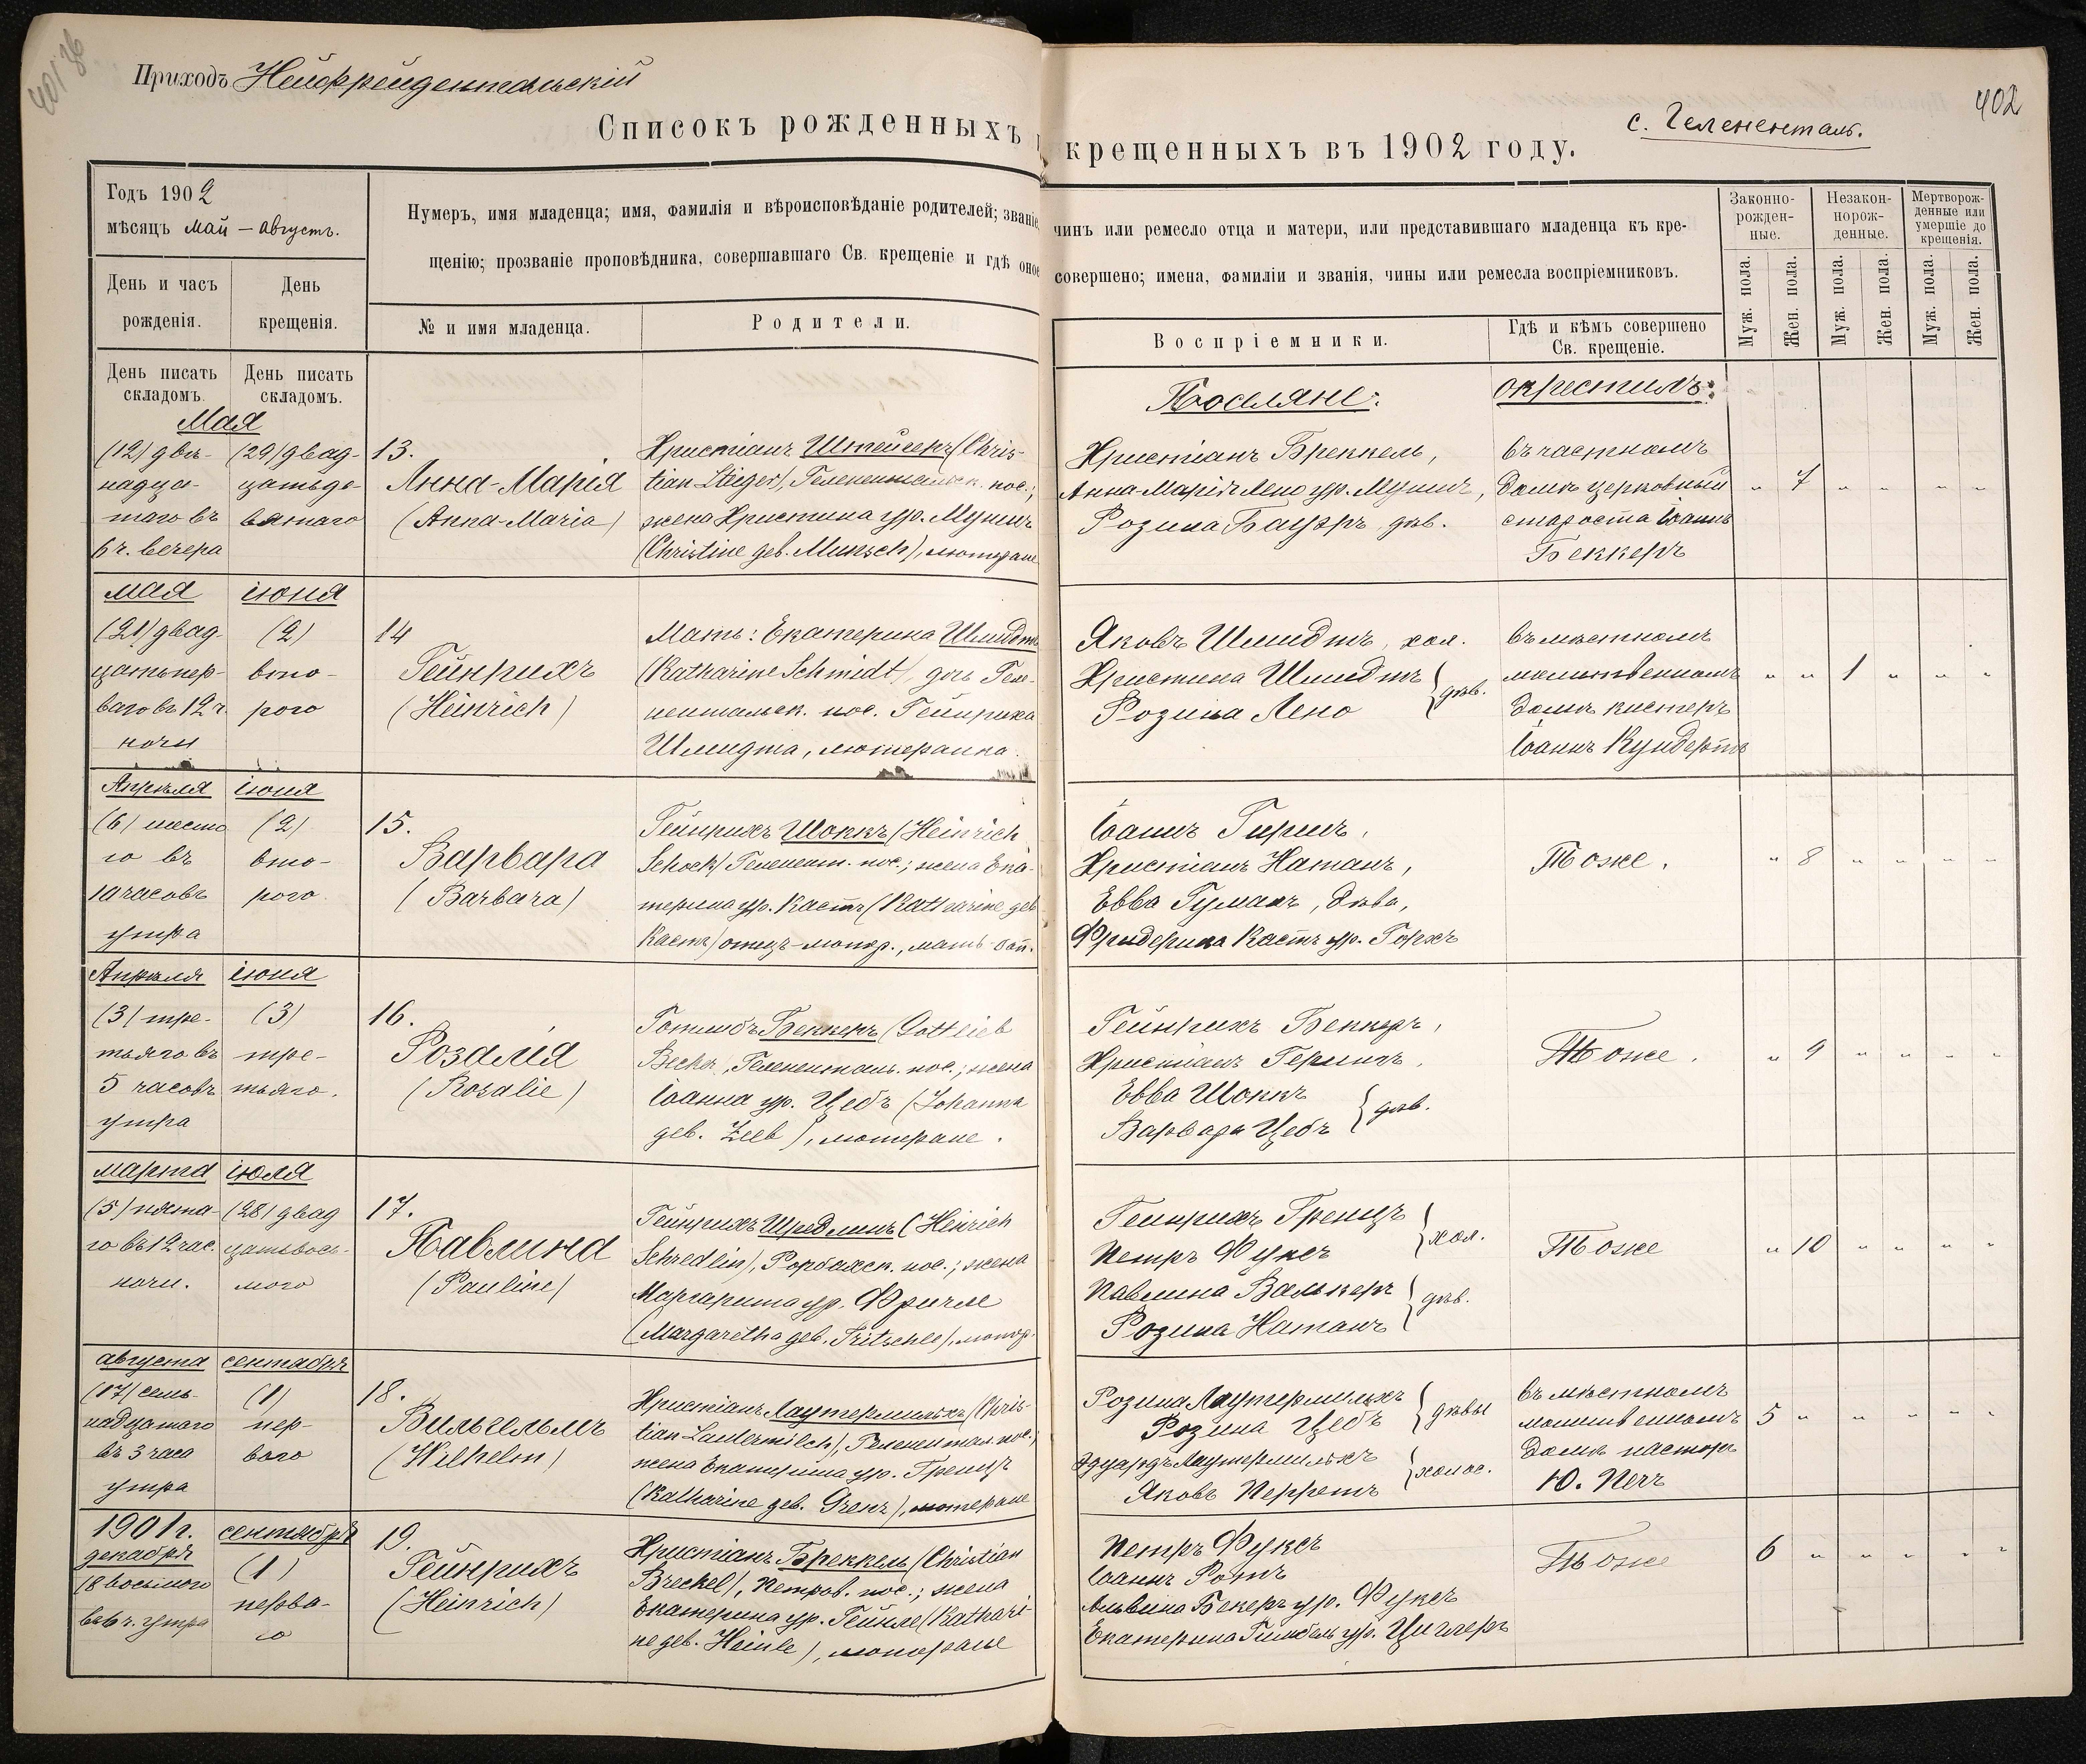 Приходъ Нейфрейдентальскій
402
с. Гелененталь.
Списокъ рожденныхъ
крещенныхъ въ 1902 году.
Годъ 1902
мѣсяцъ май – августъ.
Нумеръ, имя младенца; имя, фамилія и вѣроисповѣданіе родителей; званіе,
щенію; прозваніе проповѣдника, совершавшаго Св. крещеніе и гдѣ оное
чинъ или ремесло отца и матери, или представившаго младенца къ кре-
совершено; имена, фамиліи и званія, чины или ремесла воспріемниковъ.
День и часъ
рожденія.
День
крещенія.
№ и имя младенца.
Родители.
Воспріемники.
Гдѣ и кѣмъ совершено
Св. крещеніе.
Законно-
рожден-
ные.
Незакон-
норож-
денные.
Мертворож-
денные или
умершіе до
крещенія.
Муж. пола.
Жен. пола.
Муж. пола.
Жен. пола.
Муж. пола.
Жен. пола.
День писать
складомъ.
День писать
складомъ.
Поселяне:
окрестилъ:
Мая
(12) двѣ-
надца-
таго въ
6 ч. вечера
(29) двад-
цатьде-
вятаго
13.
Анна-Марія
(Anna-Maria)
Христіанъ Штейгеръ (Chris-
tian Steiger), Геленентальск. пос.;
жена Христина ур. Муншъ
(Christine geb. Munsch), лютеране
Христіанъ Бреккель,
Анна-Марія Лено ур. Муншъ,
Розина Бауэръ, дѣв.
въ частномъ
домѣ церковный
староста Іоаннъ
Беккеръ
" 7 " " " "
мая
іюня
(21) двад-
цатьпер-
ваго въ 12 ч.
ночи
(2)
вто-
рого
14
Гейнрихъ
(Heinrich)
Мать: Екатерина Шмидтъ
(Katharine Schmidt), дочь Геле-
нентальск. пос. Гейнриха
Шмидта, лютеранка.
Яковъ Шмидтъ, хол.
Христина Шмидтъ
Розина Лено
дѣв.
въ мѣстномъ
молитвенномъ
домѣ кистеръ
Іоаннъ Кундертъ
" " 1 " " "
Апрѣля
іюня
(6) шесто
го въ
10 часовъ
утра
(2)
вто-
рого
15.
Варвара
(Barbara)
Гейнрихъ Шоккъ (Heinrich
Schock) Геленент. пос.; жена Ека-
терина ур. Кастъ (Katharine geb.
Кастъ) отецъ-лютер., мать-бап.
Іоаннъ Гиршъ,
Христіанъ Натанъ,
Евва Гуманъ, дѣва,
Фридерика Кастъ ур. Горхъ
Тоже.
" 8 " " " "
Апрѣля
іюня
(3) тре-
тьяго въ
5 часовъ
утра
(3)
тре-
тьяго.
16.
Розалія
(Rosalie)
Готлибъ Беккеръ (Gottlieb
Becker), Гелененталь. пос.; жена
Іоанна ур. Цебъ (Johanna
geb. Zeeb), лютеране.
Гейнрихъ Беккеръ,
Христіанъ Герингъ,
Евва Шоккъ
Варвара Цебъ
дѣв.
Тоже.
" 9 " " " "
марта
іюля
(5) пята-
го въ 12 час.
ночи.
(28) двад
цатьвось-
мого
17.
Павлина
(Pauline)
Гейнрихъ Шредлинъ (Heinrich
Schredlin), Рорбахск. пос.; жена
Маргарита ур. Фричле
(Margaretha geb. Fritschle), лютер.
Гейнрихъ Гренцъ
Петръ Фуксъ
хол.
Павлина Валькеръ
Розина Натанъ
дѣв.
Тоже
" 10 " " " "
августа
сентября
(17) семь-
надцатаго
въ 3 часа
утра
(1)
пер-
ваго
18.
Вильгельмъ
(Wilhelm)
Христіанъ Лаутермильхъ (Chris-
tian Lautermilch), Гелененталь. пос.;
жена Екатерина ур. Гренцъ
(Katharine geb. Grenz), лютеране
Розина Лаутермильхъ
Розина Цебъ
дѣвы
Эдуардъ Лаутермильхъ
Яковъ Перретъ
холос.
въ мѣстномъ
молитвенномъ
домѣ пасторъ
Ю. Печъ
5 " " " " "
1901 г.
декабря
сентября
(8 восьмого
въ 6 ч. утра
(1)
перва-
го
19.
Гейнрихъ
(Heinrich)
Христіанъ Бреккель (Christian
Breckel), Петров. пос.; жена
Екатерина ур. Гейнле (Kathari-
ne geb. Heinle), лютеране
Петръ Фуксъ
Іоаннъ Ротъ
Альвина Бекеръ ур. Фуксъ
Екатерина Гимбель ур. Циглеръ
Тоже
6 " " " " "